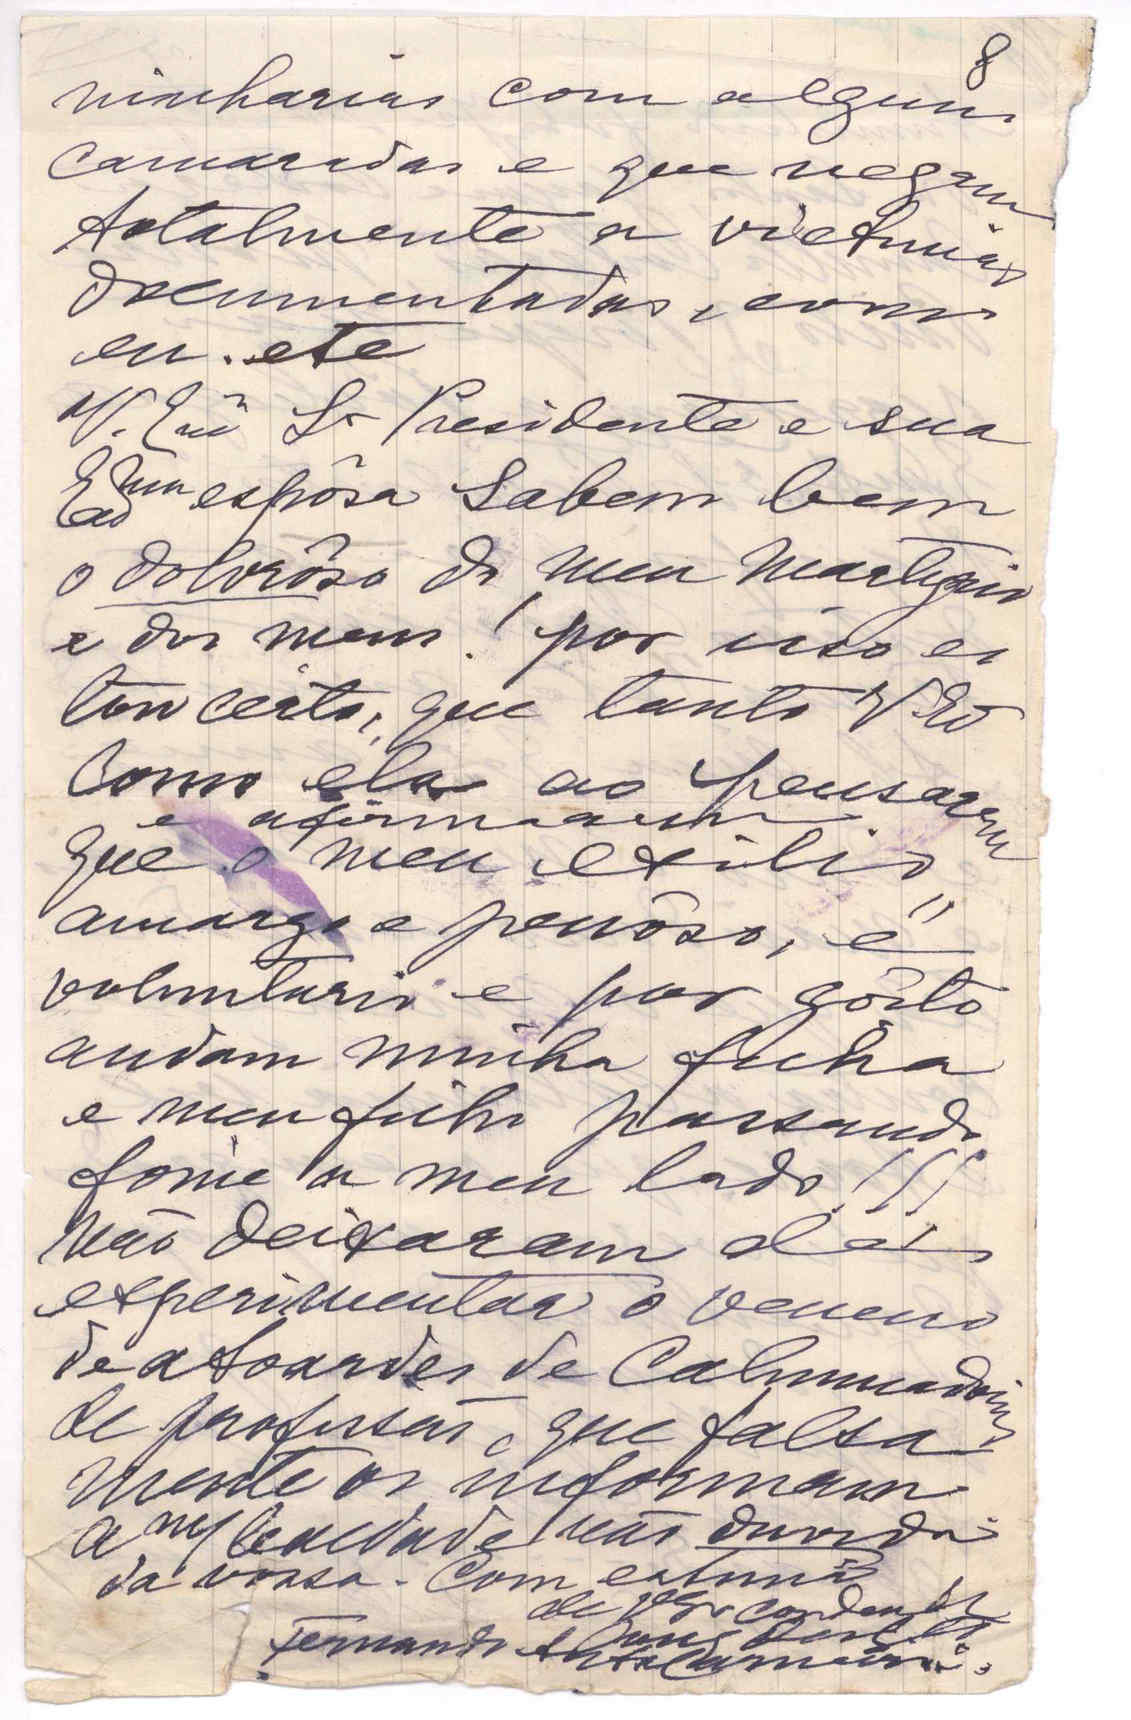 8
ninharias com alguns
camaradas e que negam
totalmente a victimas
documentadas, como
eu. etc
V. Exª Sr Presidente e sua
Exma espôsa sabem bem
o dolorôso do meu martyrio
e dos meus! por isso es
tou certo, que tanto V Exª
como ela ao pensarem
e afirmarem
que o meu exilio,
amargo e penôso, é
voluntario e por gôsto
andam minha filha
e meu filho passando
fome a meu lado!!!
Não deixaram de
experimentar o veneno
de atoardes de Calumniadores
de profissão, que falsa
mente os informam.
A m/ lealdade não duvida
da vossa. Com estima
de
Fernando Carneiro